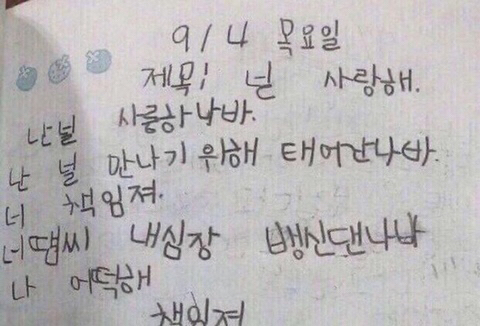 9/4 목요일
제목! 널 사랑해.
난널 사릉하나바.
난 널 만나기 위해 태어난나바.
너 책임져.
너땜씨 내심장 뱅신댄나바
나 어떡해
책임져